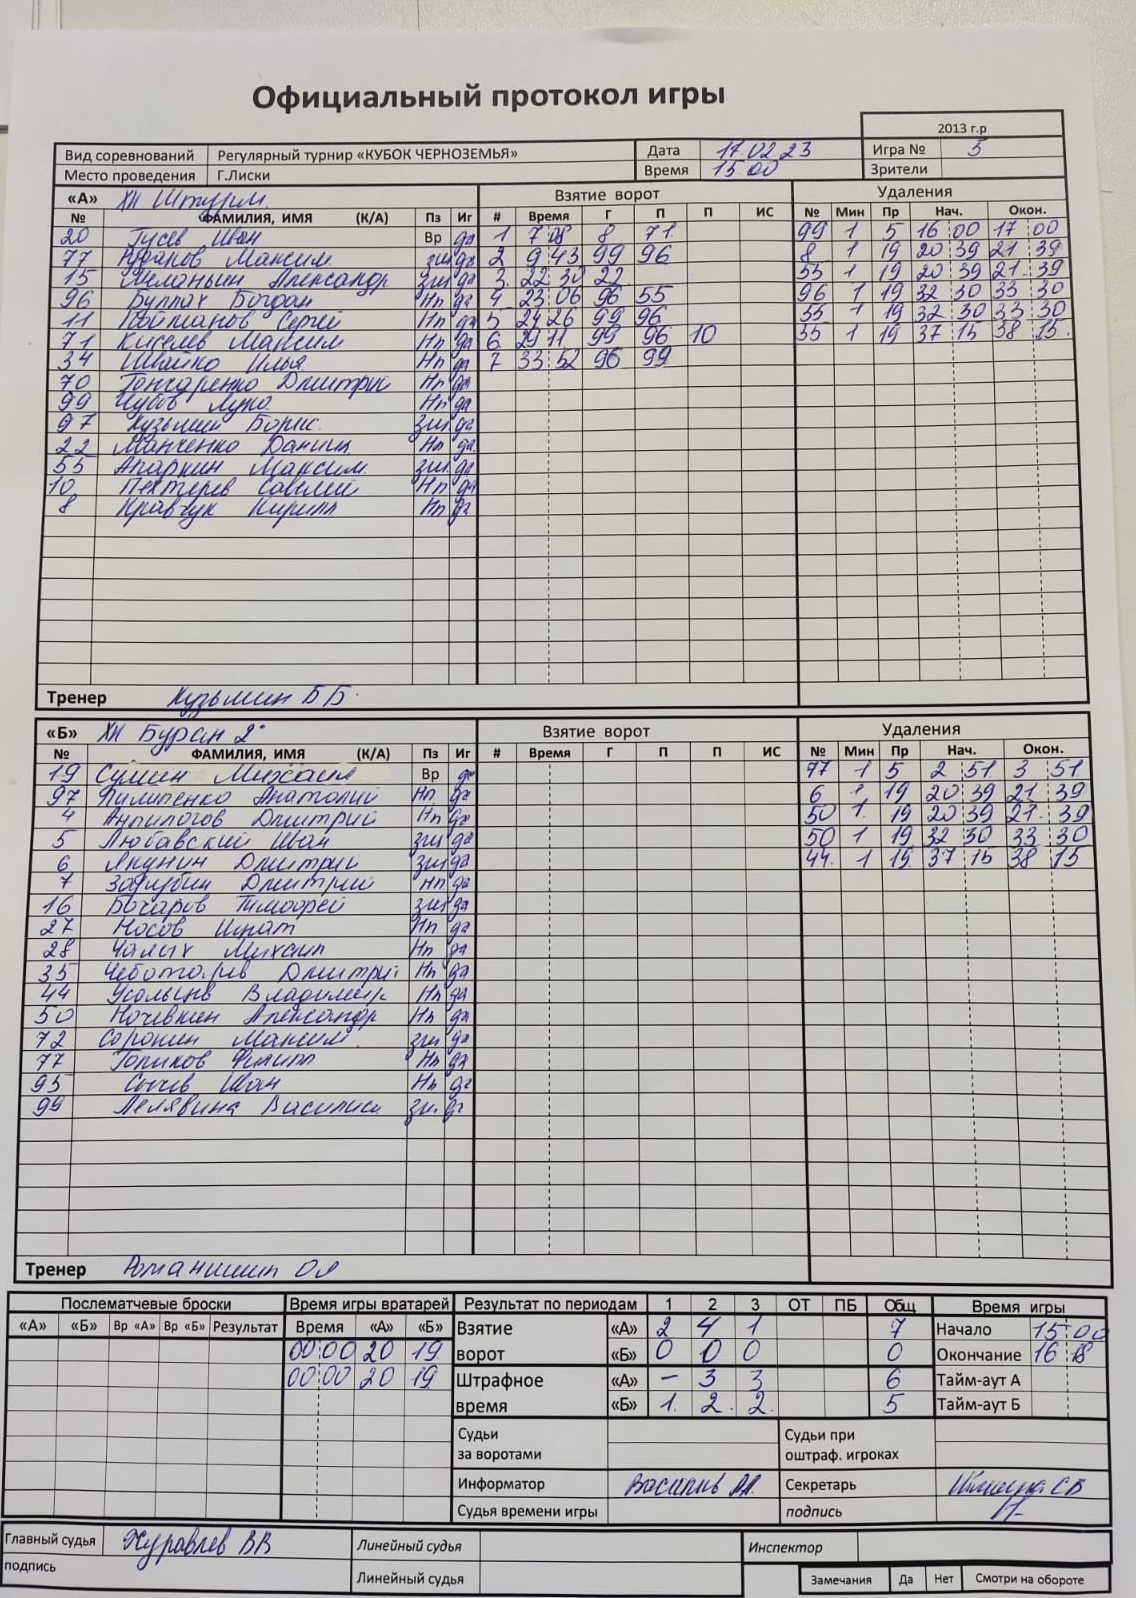 Официальный протокол игры
2013 г.р
Вид соревнований Регулярный турнир «КУБОК ЧЕРНОЗЕМЬЯ» Дата 17.02.23 Игра № 5
Место проведения Г.Лиски Время 15.00 Зрители
«А» ХК Штурм Взятие ворот Удаления
№ ФАМИЛИЯ, ИМЯ (К/А) Пз Иг # Время Г П П ИС № Мин Пр Нач. Окон.
20 Гусев Иван Вр да 1 7 08 8 71 99 1 5 16 00 17 00
77 Максим зщ да 2 9 43 99 96 8 1 19 20 39 21 39
15 Александр зщ да 3. 22 30 22 55 1 19 20 39 21.39
96 Буллах Богдан Нп да 4 23 06 96 55 96 1 19 32 30 33 30
11 Войтанов Сергей Нп да 5 24 26 99 96 55 1 19 32 30 33 30
71 Киселев Максим Нп да 6 29 11 99 96 10 55 1 19 37 15 38 15
34 Швайко Илья Нп да 7 33 52 96 99
70 Гончаренко Дмитрий Нп да
99 Чубов Лука Нп да
97 Кузьмин Борис зщ да
22 Марченко Данил Нп да
55 Апаркин Максим зщ да
10 Пехтерев Савелий Нп да
8 Кравчук Кирилл Нп да
Тренер Кузьмин Б Б
«Б» ХК Буран 2 Взятие ворот Удаления
№ ФАМИЛИЯ, ИМЯ (К/А) Пз Иг # Время Г П П ИС № Мин Пр Нач. Окон.
19 Сушен Михаил Вр да 77 1 5 2 51 3 51
97 Пилипенко Анатолий Нп да 6 1 19 20 39 21 39
4 Анпилогов Дмитрий Нп да 50 1. 19 20 39 21. 39
5 Любавский Иван зщ да 50 1 19 32 30 33 30
6 Якунин Дмитрий зщ да 44. 1 19 37 15 38 15
7 Дмитрий Нп да
16 Бочаров Тимофей зщ да
27 Носов Игнат Нп да
28 Чалых Михаил Нп да
35 Чеботарев Дмитрий Нп да
44 Владимир Нп да
50 Ночевкин Александр Нп да
72 Сорокин Максим зщ да
77 Голиков Филипп Нп да
95 Сычев Иван Нп да
99 Лелявина Василиса зщ да
Тренер Романишин О Я
Послематчевые броски Время игры вратарей Результат по периодам 1 2 3 ОТ ПБ Общ Время игры
«А» «Б» Вр «А» Вр «Б» Результат Время «А» «Б» Взятие «А» 2 4 1 7 Начало 15 00
00 00 20 19 ворот «Б» 0 0 0 0 Окончание 16 18
00 00 20 19 Штрафное «А» – 3 3 6 Тайм-аут А
время «Б» 1. 2. 2. 5 Тайм-аут Б
Судьи за воротами Судьи при оштраф. игроках
Информатор Секретарь
Судья времени игры подпись
Главный судья Журавлев ВВ Линейный судья Инспектор
подпись Линейный судья Замечания Да Нет Смотри на обороте